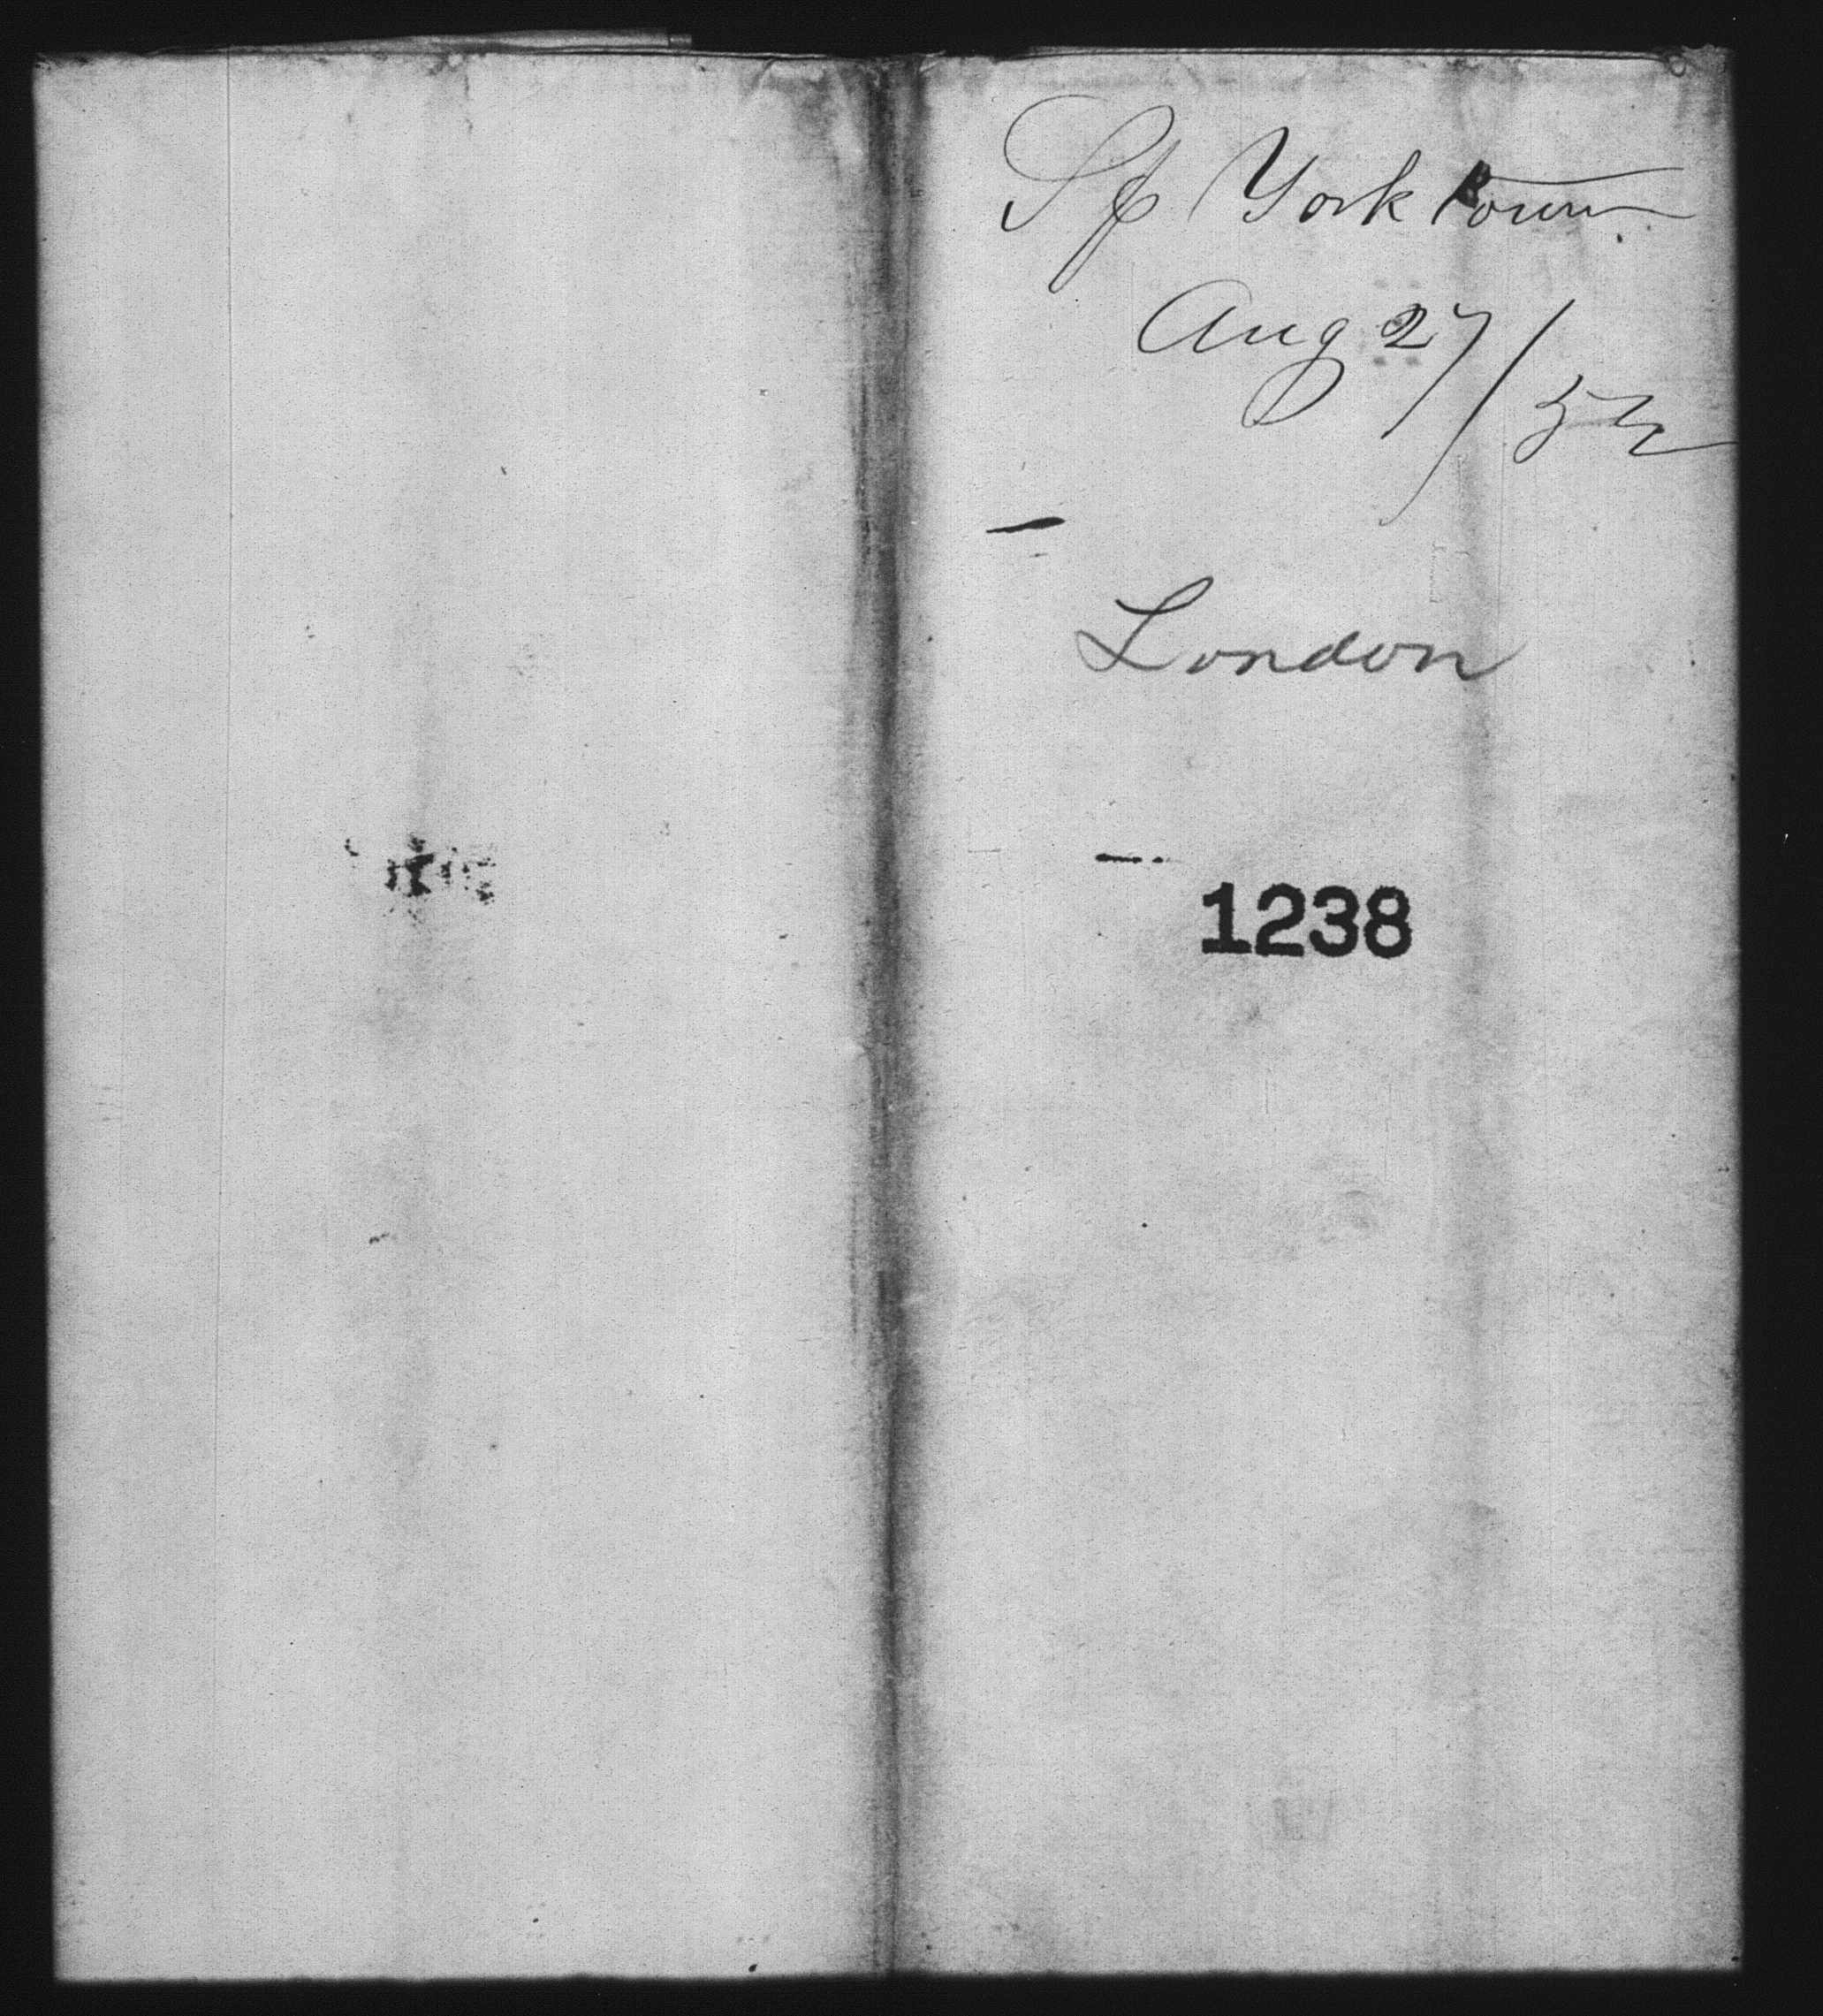 Sp Yorktown
Aug 27/52
London
1238